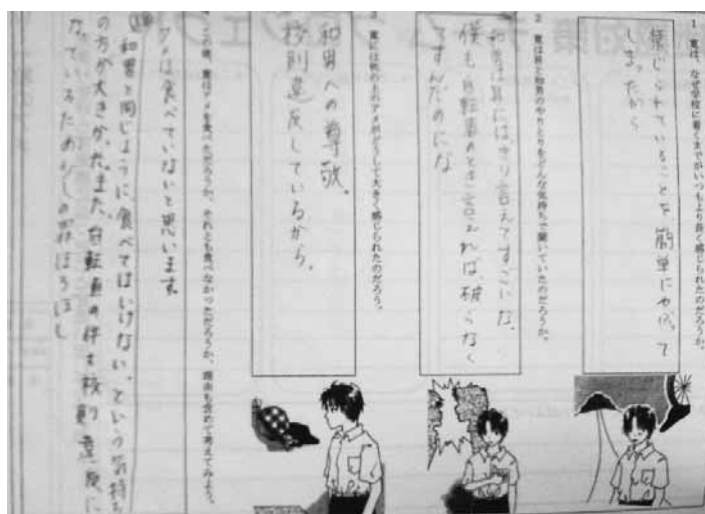 1 寛は、なぜ学校に着くまでがいつもより長く感じられたのだろうか。
禁じられていることを、簡単にやぶって
しまったから
2 寛は昇と和男のやりとりをどんな気持ちで聞いていたのだろうか。
和男は昇にはっきり言えてすごいな。
僕も自転車のとき言えれば、破らなく
てすんだのにな
3 寛には机の上のアメ玉がどうして大きく感じられたのだろう。
和男への尊敬。
校則違反しているから。
この後、寛はアメを食べただろうか、それとも食べなかっただろうか、理由も含めて考えてみよう。
アメは食べていないと思います
和男と同じように、食べてはいけない、という気持ち
の方が大きかった。また、自転車の件も校則違反に
なっているため